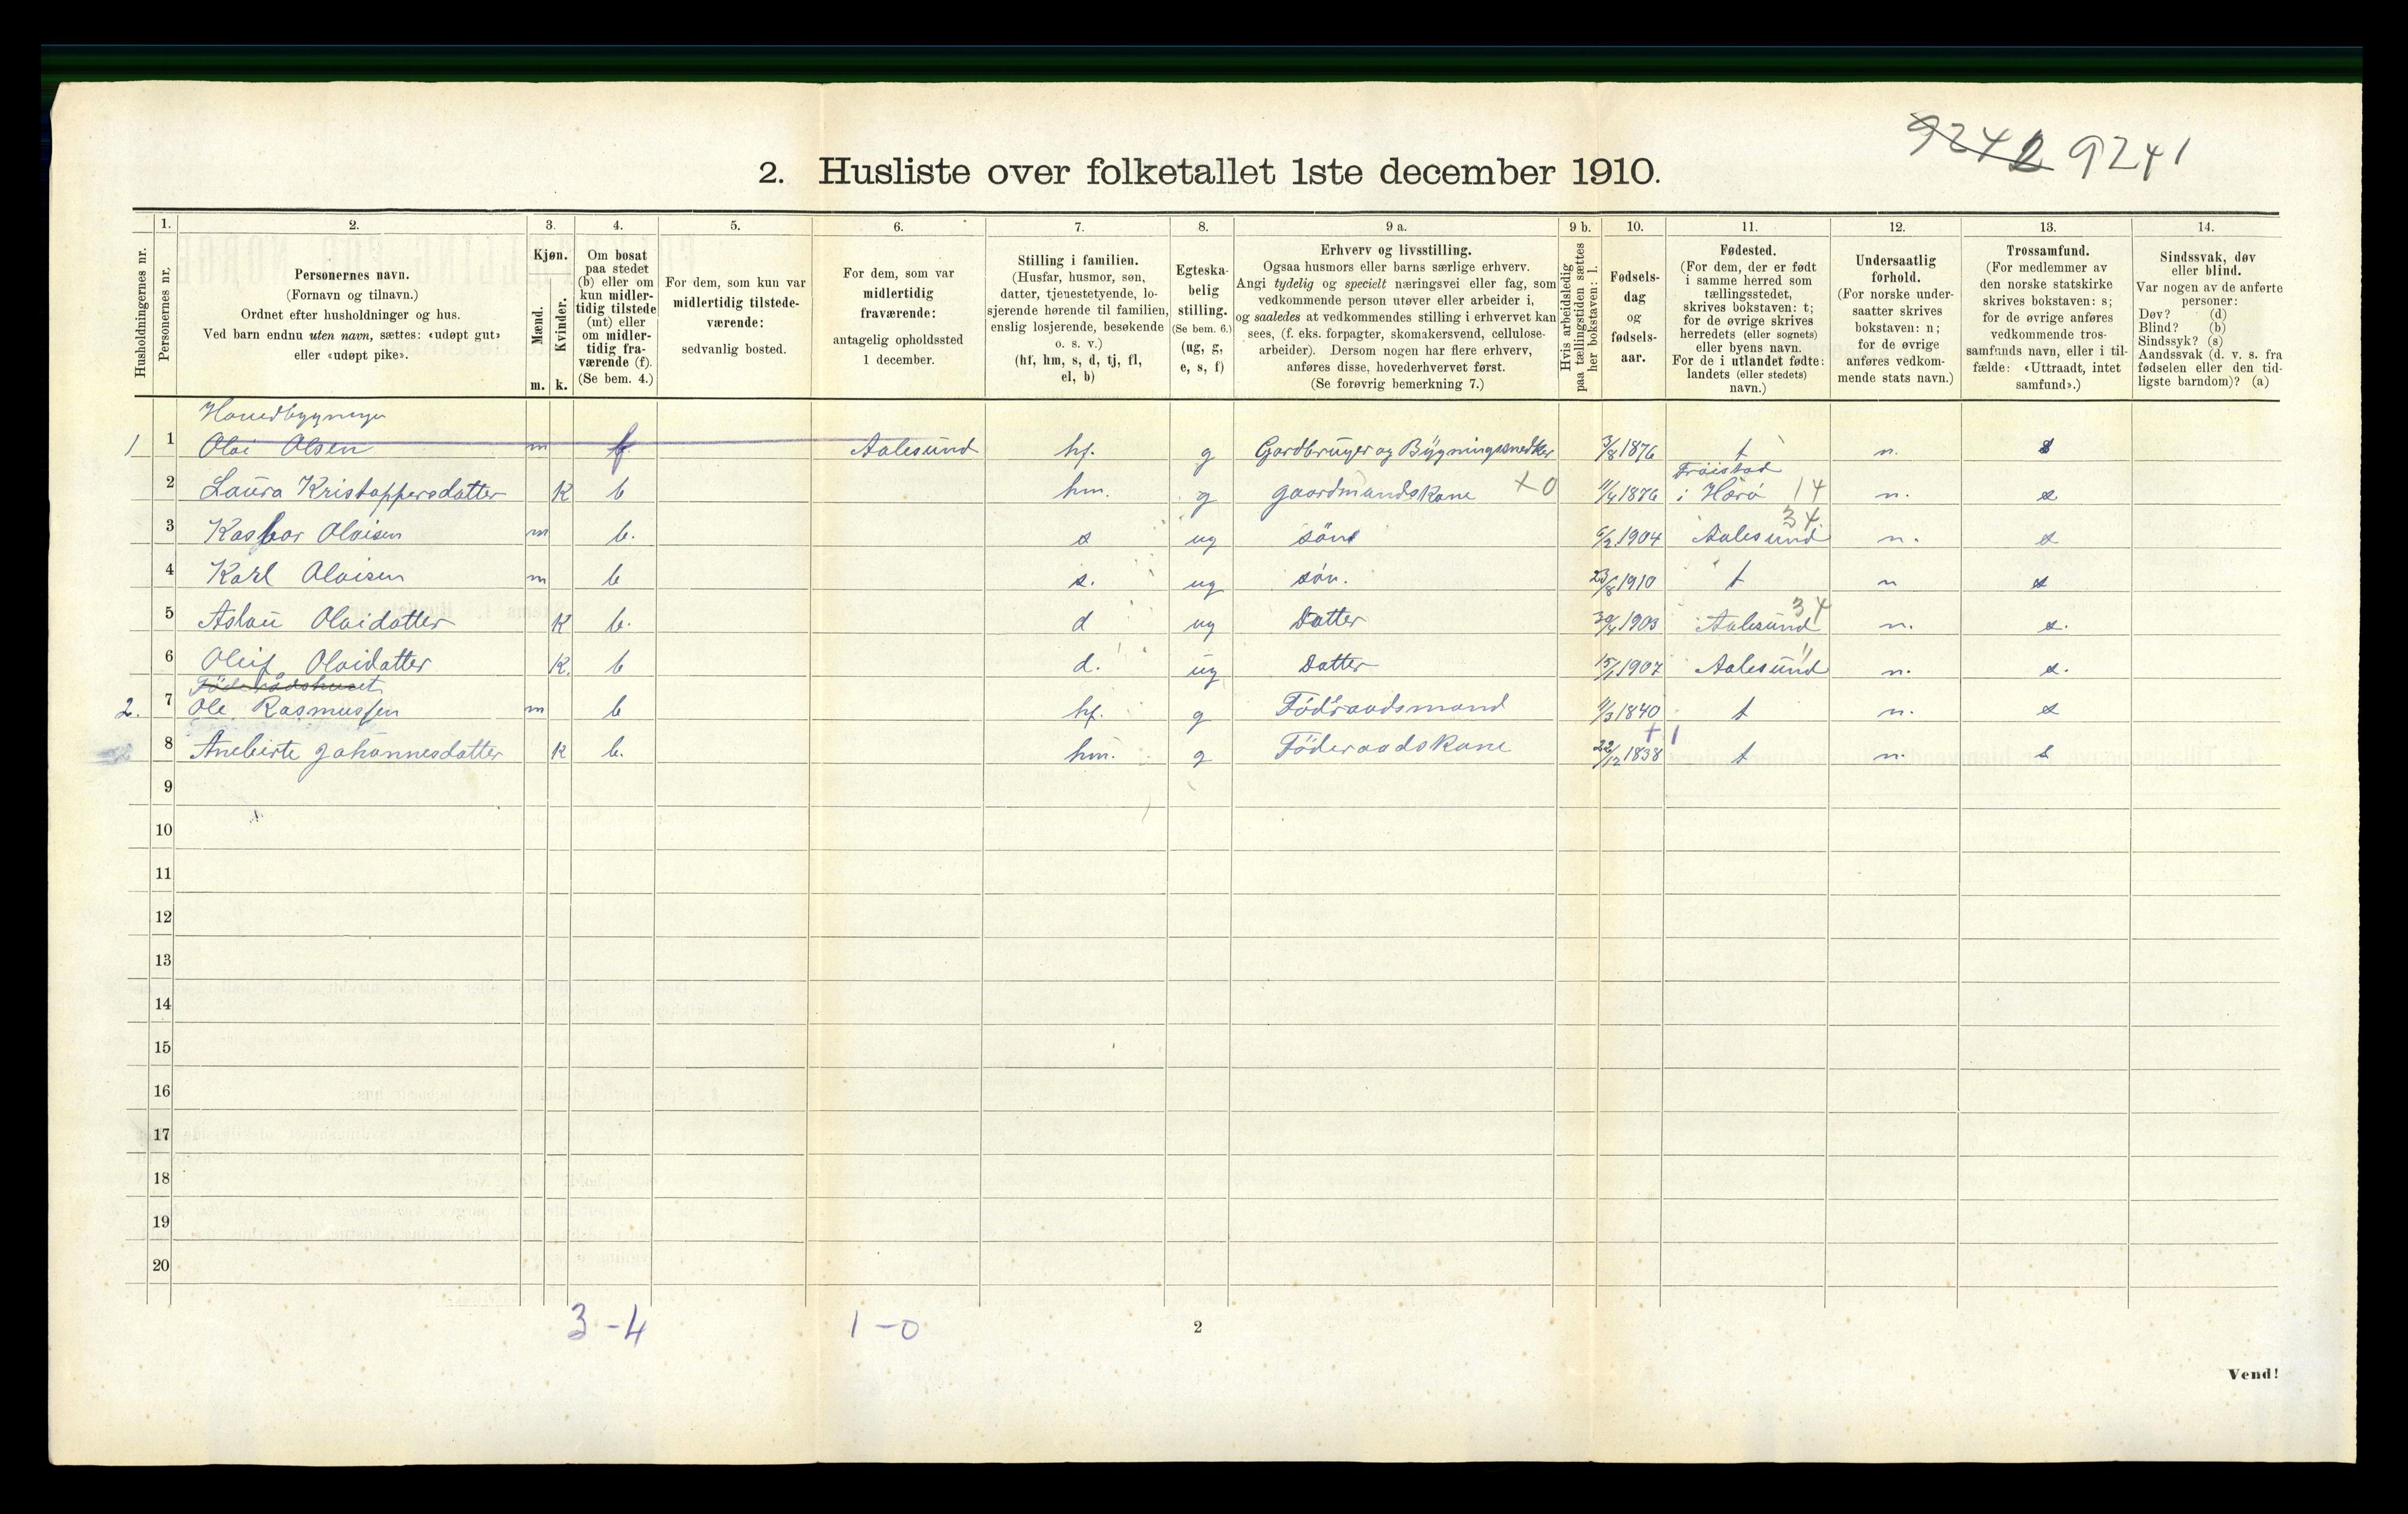 9242 9241
2. Husliste over folketallet 1ste december 1910.
Husholdningernes nr.
1.
Personernes nr.
2.
Personernes navn.
(Fornavn og tilnavn.)
Ordnet efter husholdninger og hus.
Ved barn endnu uten navn, sættes: «udøpt gut»
eller «udøpt pike».
3.
Kjøn.
Mænd.
Kvinder.
m. k.
4.
Om bosat
paa stedet
(b) eller om
kun midler-
tidig tilstede
(mt) eller
om midler-
tidig fra-
værende (f).
(Se bem. 4.)
5.
For dem, som kun var
midlertidig tilstede-
værende:
sedvanlig bosted.
6.
For dem, som var
midlertidig
fraværende:
antagelig opholdssted
1 december.
7.
Stilling i familien.
(Husfar, husmor, søn,
datter, tjenestetyende, lo-
sjerende hørende til familien,
enslig losjerende, besøkende
o. s. v.)
(hf, hm, s, d, tj, fl,
el, b)
8.
Egteska-
belig
stilling.
(Se bem. 6.)
(ug, g,
e, s, f)
9 a.
Erhverv og livsstilling.
Ogsaa husmors eller barns særlige erhverv.
Angi tydelig og specielt næringsvei eller fag, som
vedkommende person utøver eller arbeider i,
og saaledes at vedkommendes stilling i erhvervet kan
sees, (f. eks. forpagter, skomakersvend, cellulose-
arbeider). Dersom nogen har flere erhverv,
anføres disse, hovederhvervet først.
(Se forøvrig bemerkning 7.)
9 b.
Hvis arbeidsledig
paa tællingstiden sættes
her bokstaven: l.
10.
Fødsels-
dag
og
fødsels-
aar.
11.
Fødested.
(For dem, der er født
i samme herred som
tællingsstedet,
skrives bokstaven: t;
for de øvrige skrives
herredets (eller sognets)
eller byens navn.
For de i utlandet fødte:
landets (eller stedets)
navn.)
12.
Undersaatlig
forhold.
(For norske under-
saatter skrives
bokstaven: n;
for de øvrige
anføres vedkom-
mende stats navn.)
13.
Trossamfund.
(For medlemmer av
den norske statskirke
skrives bokstaven: s;
for de øvrige anføres
vedkommende tros-
samfunds navn, eller i til-
fælde: «Uttraadt, intet
samfund».)
14.
Sindssvak, døv
eller blind.
Var nogen av de anførte
personer:
Døv? (d)
Blind? (b)
Sindssyk? (s)
Aandssvak (d. v. s. fra
fødselen eller den tid-
ligste barndom)? (a)
Hovedbygningen
1 1 Olai Olsen m f Aalesund hf. g Gardbruger og Bygningssnedker 3/8 1876 t n. s
2 Laura Kristoffersdatter K b hm. g gaardmandskone x0 11/4 1876 Frøistad i Hørø 14 n. s
3 Kasbar Olaisen m b. s ug søn 6/2 1904 Aalesund 34 n. s
4 Karl Olaisen m b s. ug søn. 23/8 1910 t n s
5 Aslau Olaidatter K b. d ug Datter 30/4 1903 Aalesund 34 n. s.
6 Oleif Olaidatter K. b d. ug Datter 15/1 1907 Aalesund " n. s.
Föderådshuset
2. 7 Ole Rasmussen m b hf. g Föderaadsmand 11/3 1840 t n. s
8 Aneberte Johannesdatter K b. hm. g Föderaadskone 22/12 1838 +1 t n. s
9
10
11
12
13
14
15
16
17
18
19
20
3-4 1-0
2
Vend!